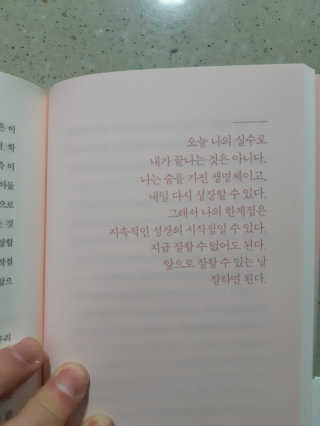 오늘 나의 실수로
내가 끝나는 것은 아니다.
나는 숨을 가진 생명체이고,
내일 다시 성장할 수 있다.
그래서 나의 한계점은
지속적인 성장의 시작점일 수 있다.
지금 잘할 수 없어도 된다.
앞으로 잘할 수 있는 날
잘하면 된다.